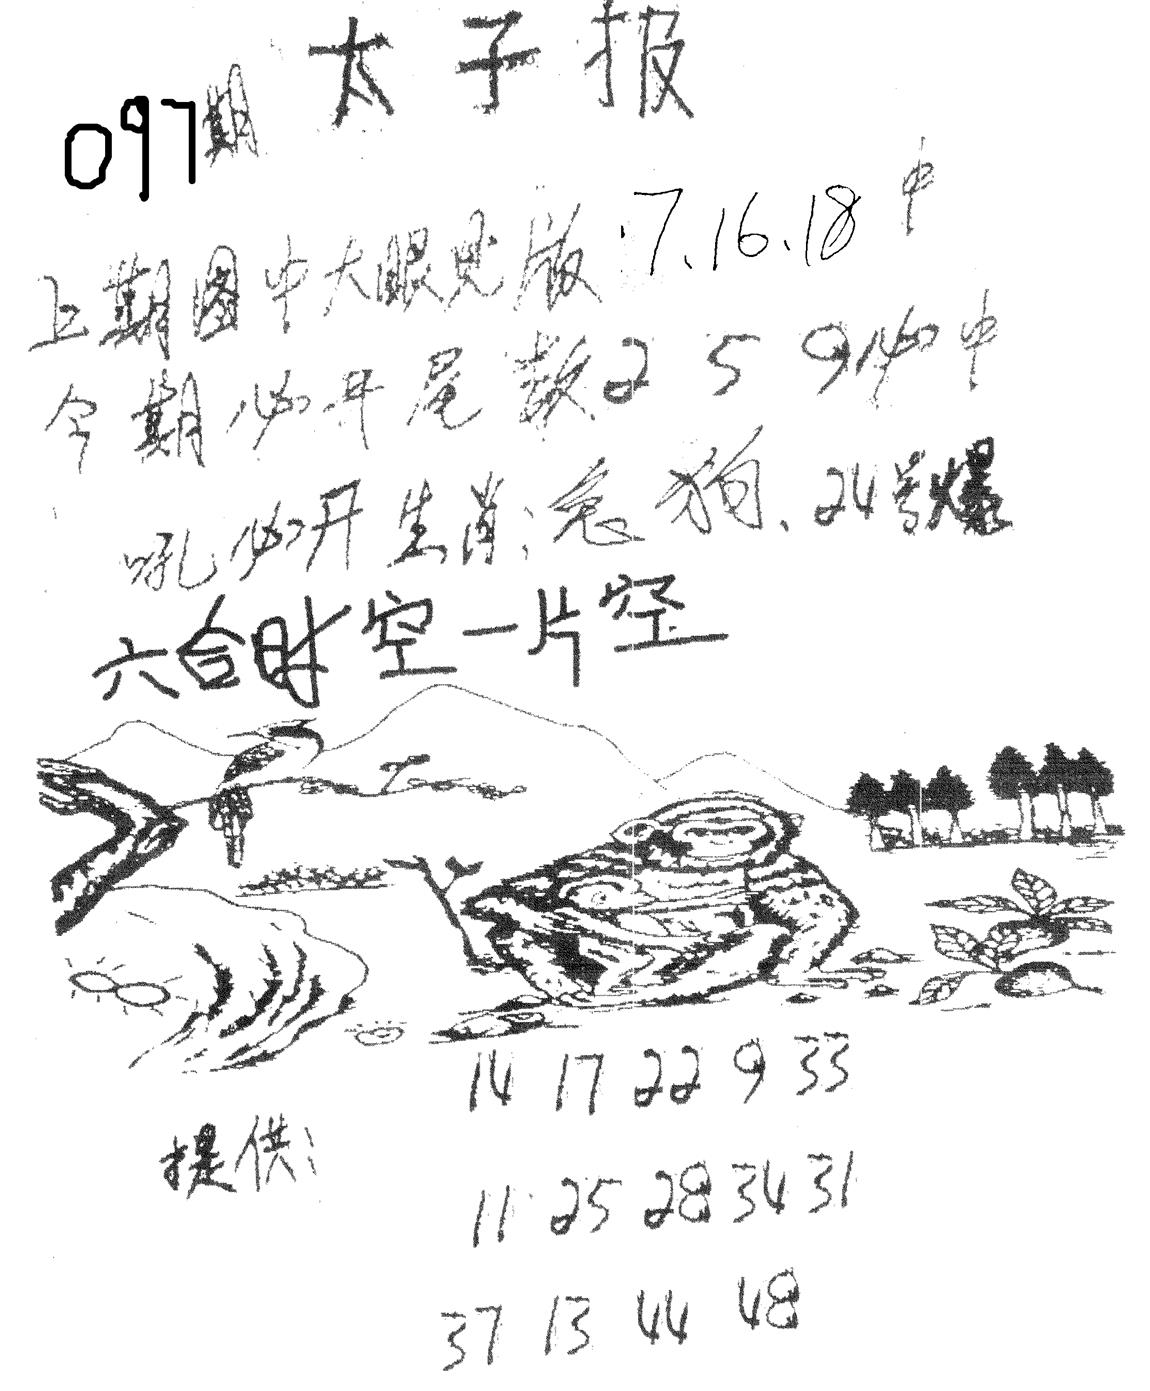 太子报
097期
上期图中大眼见版 7.16.18 中
今期必开尾数 2 5 9必中
吼必开生肖:兔 狗、24号爆
六合时空一片空
14 17 22 9 33
提供:
11 25 28 34 31
37 13 44 48